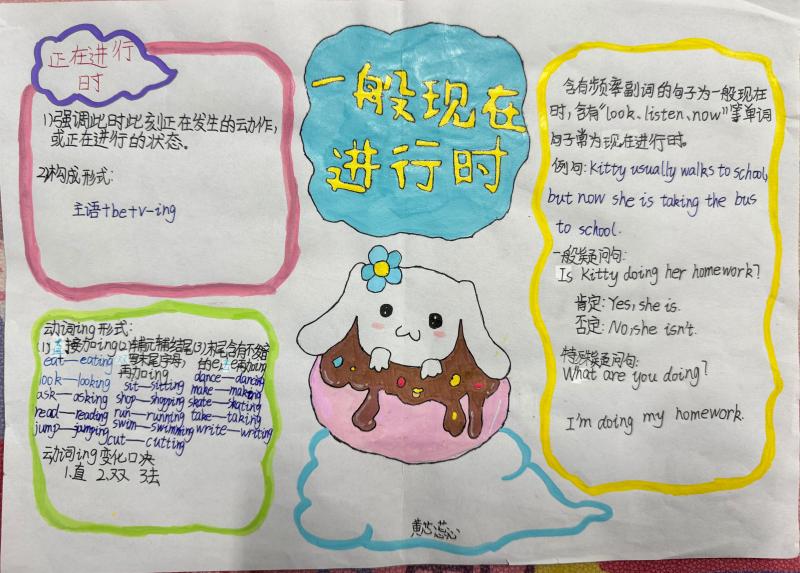 一般现在
进行时
正在进行
时
1)强调此时此刻正在发生的动作,
或正在进行的状态。
2)构成形式:
主语+be+v-ing
动词ing形式:
(1)直接加ing
eat—eating
look—looking
ask—asking
read—reading
jump—jumping
(2)辅元辅结尾
双写末尾字母,
再加ing
sit—sitting
shop—shopping
run—running
swim—swimming
cut—cutting
(3)末尾含有不发音
的e
dance—dancing
make—making
skate—skating
take—taking
write—writing
动词ing变化口决
1.直 2.双 3去
含有频率副词的句子为一般现在
时,含有"look、listen、now"等单词
句子常为现在进行时。
例句:Kitty usually walks to school,
but now she is taking the bus
to school.
一般疑问句:
Is Kitty doing her homework?
肯定:Yes, she is.
否定:No, she isn't.
特殊疑问句:
What are you doing?
I'm doing my homework.